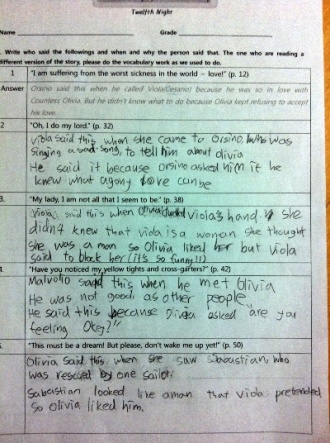 Twelfth Night
Name Grade
. Write who said the followings and when and why the person said that. The one who are reading a
different version of the story, please do the vocabulary work as we used to do.
1 "I am suffering from the worst sickness in the world – love!" (p. 12)
Answer Orsino said this when he called Viola(Cesario) because he was so in love with
Countless Olivia. But he didn't know what to do because Olivia kept refusing to accept
his love.
2 "Oh, I do my lord." (p. 32)
Viola said this when she came to Orsino, who was
singing a sad song, to tell him about olivia
He said it because orsino asked him if he
knew what agony love can be
3. "My lady, I am not all that I seem to be." (p. 38)
Viola said this when Olivia Viola's hand. she
didn't knew that viola is a woman she thought
she was a man so Olivia liked her but viola
said to block her (it's so funny!!!)
"Have you noticed my yellow tights and cross-gaiters?" (p. 42)
Malvolio said this when he met Olivia
He was not good as other people
He said this because Olivia asked "are you
feeling Okey?"
"This must be a dream! But please, don't wake me up yet!" (p. 50)
Olivia said this when she saw Sabastian, who
was rescued by one sailor.
Sabastian looked like a man that Viola pretended
so Olivia liked him.